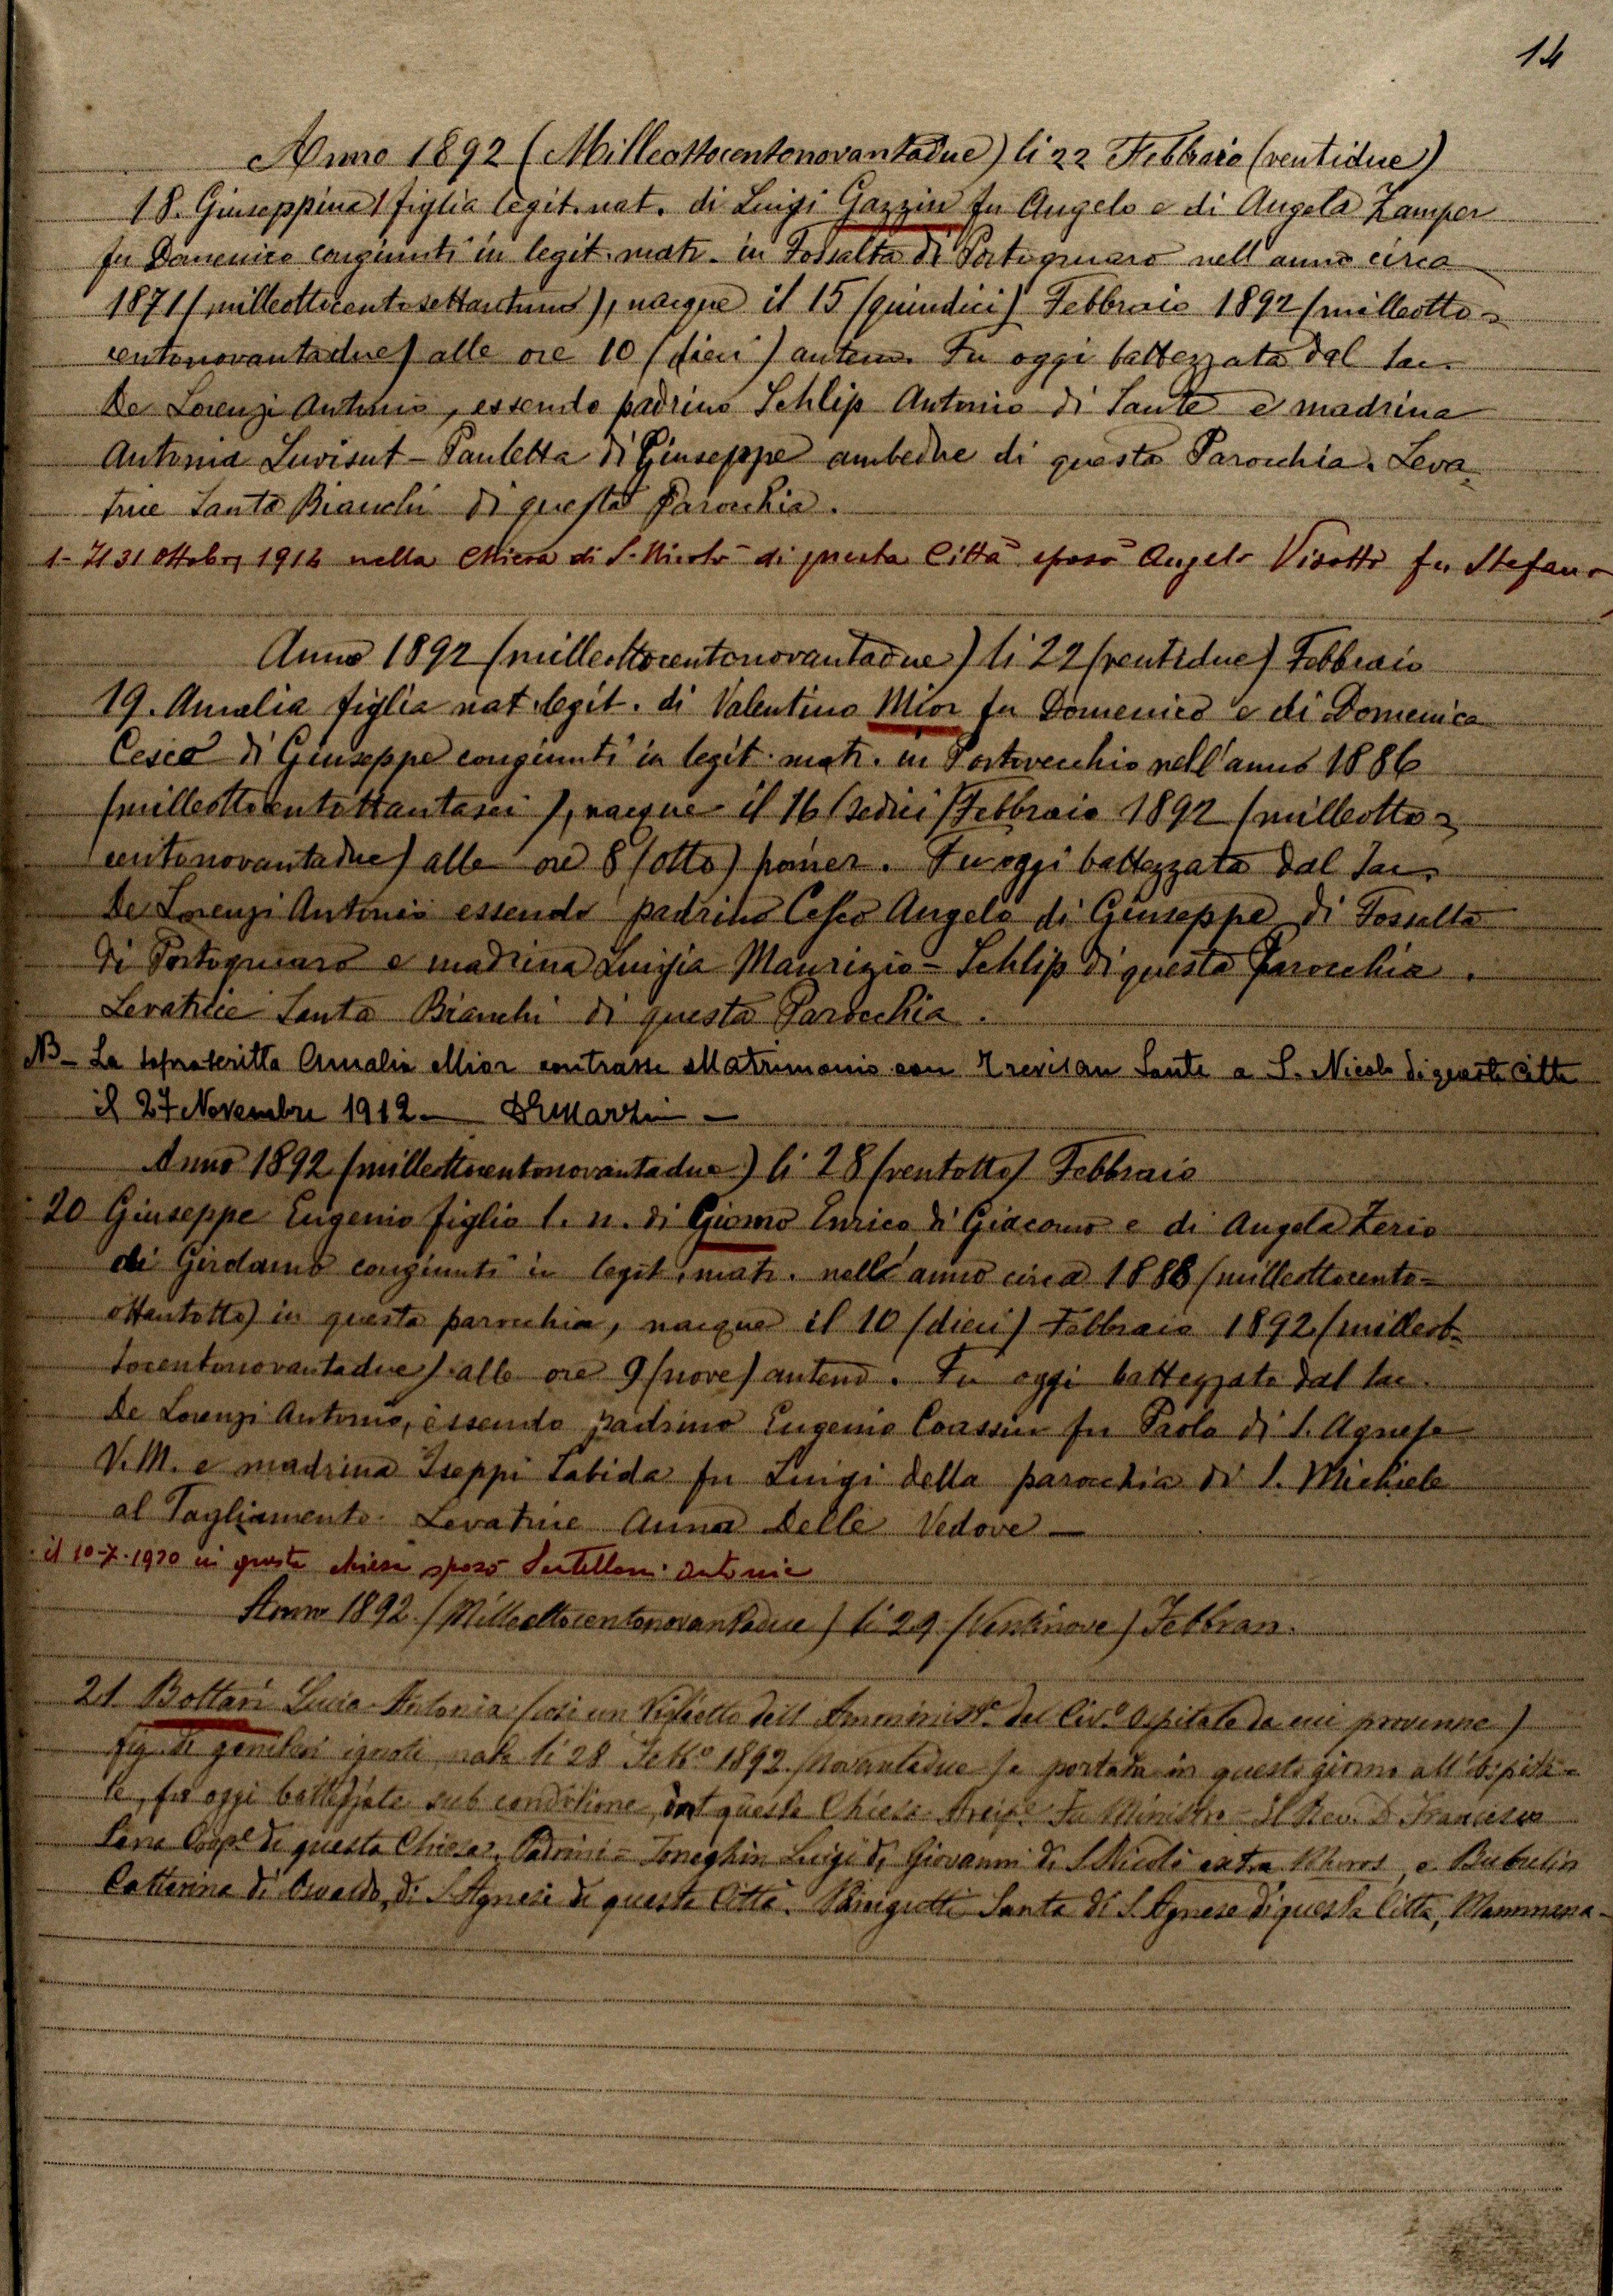 14
Anno 1892 (Milleottocentonovantadue) li 22 Febbraio (ventidue)
18. Giuseppina 1 figlia legit. nat. di Luigi Gazzin fu Angelo e di Angela Zamper
fu Domenico congiunti in legit. matr. in Fossalta di Portogruaro nell'anno circa
1871 (milleottocentosettantuno), nacque il 15 (quindici) Febbraio 1892 (milleotto=
centonovantadue) alle ore 10 (dieci) antem. Fu oggi battezzata dal Sac.
De Lorenzi Antonio, essendo padrino Schlip Antonio di Sante e madrina
Antonia Luvisut - Pauletta di Giuseppe ambedue di questa Parocchia. Leva=
trice Santa Bianchi di questa Parocchia.
1- Il 31 Ottobre 1914 nella Chiesa di S. Nicolò di questa Città sposò Angelo Visotto fu Stefano
Anno 1892 (milleottocentonovantadue) li 22 (ventidue) Febbraio
19. Amalia figlia nat. legit. di Valentino Mior fu Domenico e di Domenica
Cesco di Giuseppe congiunti in legit. matr. in Portovecchio nell'anno 1886
(milleottocentottantasei), nacque il 16 (sedici) Febbraio 1892 (milleotto=
centonovantadue) alle ore 8 (otto) pomer. Fu oggi battezzata dal Sac.
De Lorenzi Antonio essendo padrino Cesco Angelo di Giuseppe di Fossalta
di Portogruaro e madrina Luigia Maurizio - Schlip di questa Parocchia.
Levatrice Santa Bianchi di questa Parocchia.
NB - La soprascritta Amalia Mior contrasse Matrimonio con Trevisan Sante a S. Nicolo di questa Città
il 27 Novembre 1912. —
Anno 1892 (milleottocentonovantadue) li 28 (ventotto) Febbraio
20 Giuseppe Eugenio figlio l. n. di Giomo Enrico di Giacomo e di Angela Zerio
di Girolamo congiunti in legit. matr. nell'anno circa 1888 (milleottocento=
ottantotto) in questa parocchia, nacque il 10 (dieci) Febbraio 1892 (milleot=
tocentonovantadue) alle ore 9 (nove) antem. Fu oggi battezzato dal Sac.
De Lorenzi Antonio, essendo padrino Eugenio Coassin fu Paolo di S. Agnese
V.M. e madrina Iseppi Sabida fu Luigi della parochia di S. Michiele
al Tagliamento. Levatrice Anna Delle Vedove —
il 10-X-1920 in questa chiesa sposò Antonia
Anno 1892 (Milleottocentonovantadue) li 29 (Ventinove) Febbrao.
21 Bottari Lucia Antonia (così un Viglietto dell' Amminist.e del Civ.o Ospitale da cui provenne)
fig. di genitori ignoti nata li 28 Febb.o 1892 (novantadue) e portata in questo giorno all'Ospita=
le, fu oggi battezzata sub conditione in questa Chiesa Arcip.e Fu Ministro Il Rev. D. Francesco
Coop.e di questa Chiesa. Padrini = Toneghin Luigi di Giovanni di S. Nicolò extra Muros, e Bubulin
Catterina di Osvaldo, di S. Agnese di questa Città. Santa di S. Agnese di questa Città, Mammana.